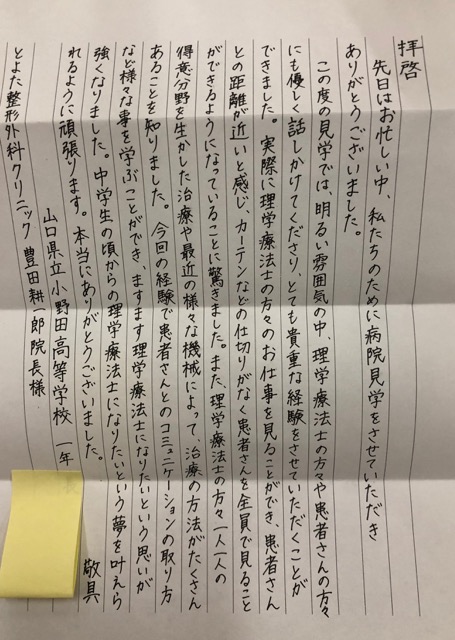 拝啓
先日はお忙しい中、私たちのために病院見学をさせていただき
ありがとうございました。
この度の見学では、明るい雰囲気の中、理学療法士の方々や患者さんの方々
にも優しく話しかけてくださり、とても貴重な経験をさせていただくことが
できました。実際に理学療法士の方々のお仕事を見ることができ、患者さん
との距離が近いと感じ、カーテンなどの仕切りがなく患者さんを全員で見ること
ができるようになっていることに驚きました。また、理学療法士の方々一人一人の
得意分野を生かした治療や最近の様々な機械によって、治療の方法がたくさん
あることを知りました。今回の経験で患者さんとのコミュニケーションの取り方
など様々な事を学ぶことができ、ますます理学療法士になりたいという思いが
強くなりました。中学生の頃からの理学療法士になりたいという夢を叶えら
れるように頑張ります。本当にありがとうございました。
敬具
山口県立小野田高等学校 一年
とよた整形外科クリニック 豊田耕一郎院長様